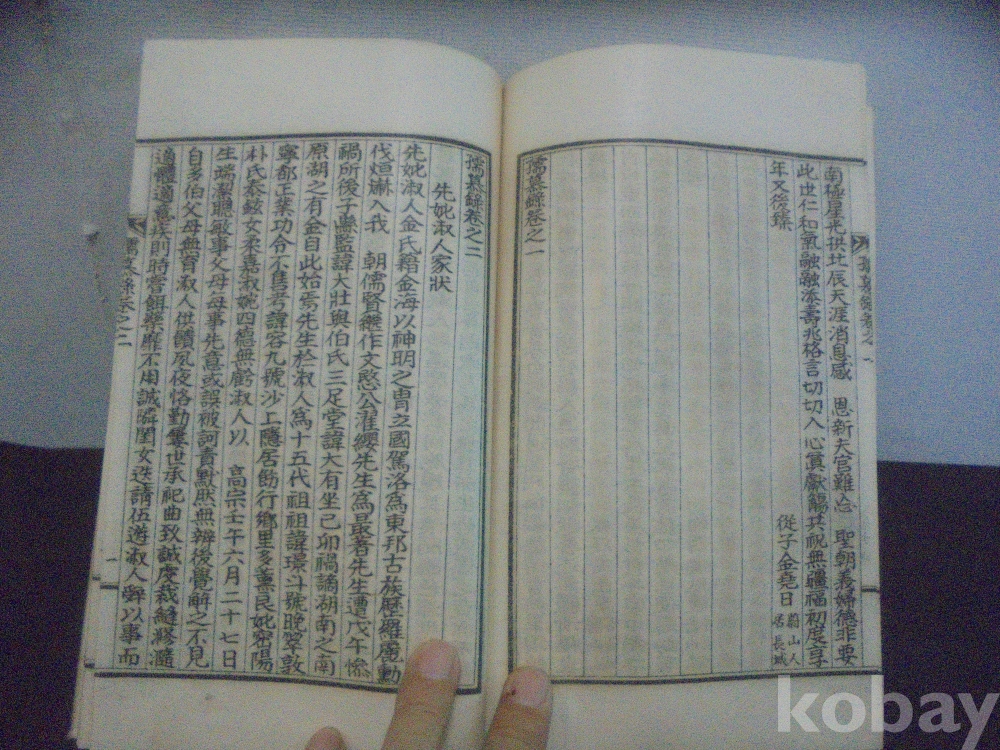 南極星光拱北辰天涯消息感 恩新夫官難忘 聖朝義婦德非要
此世仁和氣融融添壽兆格言切切入心眞獻觴共祝無疆福初度享
年又後臻
從子金堯日 蔚山人 居長城
孺慕錄卷之一
孺慕錄卷之二
先妣淑人家狀
先妣淑人金氏籍金海以神明之冑立國駕洛爲東邦古族歷羅麗勳
伐烜爀入我 朝儒賢繼作文愍公濯纓先生爲最著先生遭戊午慘
禍所後子縣監諱大壯與伯氏三足堂諱大有坐己卯禍謫湖南之南
原湖之有金自此始焉先生於淑人爲十五代祖祖諱璟斗號晩翠敦
寧都正業功令不售考諱容九號沙上隱居飭行鄕里多薰良妣密陽
朴氏泰鉉女柔嘉淑婉四德無虧淑人以 高宗壬午六月二十七日
生端潔聰敏事父母母事先意或誤被訶責默然無辨後覺解之不見
自多伯父母無育淑人供饋夙夜恪勤曩世承祀曲致誠虔裁縫滫瀡
適軆適意歲則時嘗餌藥靡不用誠隣閨女迭請伍遊淑人辭以事而
孺慕錄卷之二
一
kobay